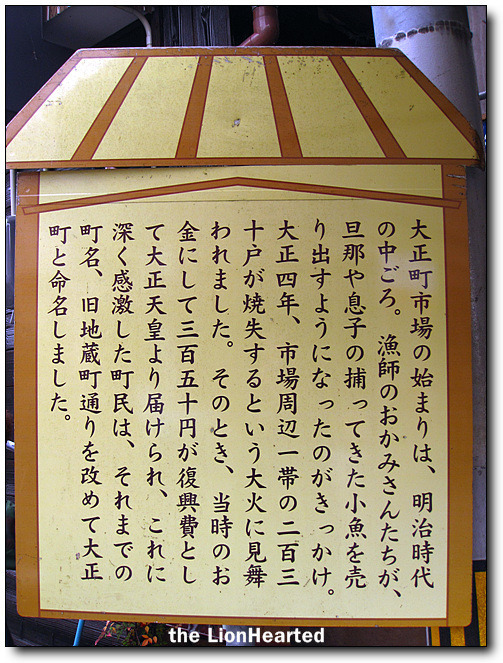 大正町市場の始まりは、明治時代
の中ごろ。漁師のおかみさんたちが、
旦那や息子の捕ってきた小魚を売
り出すようになったのがきっかけ。
大正四年、市場周辺一帯の二百三
十戸が焼失するという大火に見舞
われました。そのとき、当時のお
金にして三百五十円が復興費とし
て大正天皇より届けられ、これに
深く感激した町民は、それまでの
町名、旧地蔵町通りを改めて大正
町と命名しました。
the LionHearted